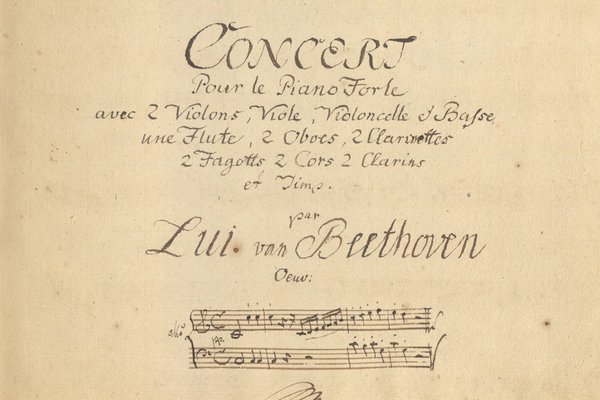 CONCERT
Pour le Piano Forte
avec 2 Violons, Viole, Violoncelle & Basse,
une Flute, 2 Oboes, 2 Clarinettes
2 Fagotts 2 Cors 2 Clarins
et Timp.
par
Lui. van Beethoven
Oeuv:
allo
pp.